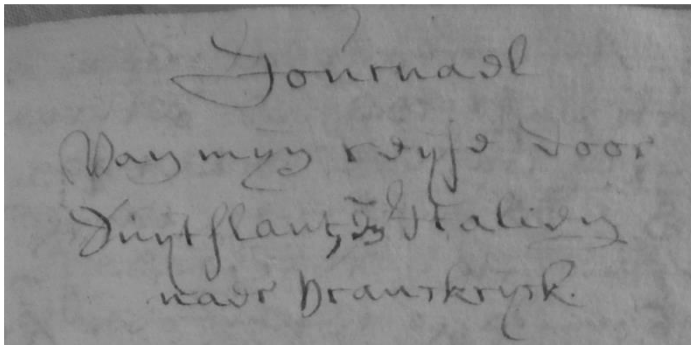 Journael
Van myn reyse door
Duytslant, en Italien
naer Vranckryck.